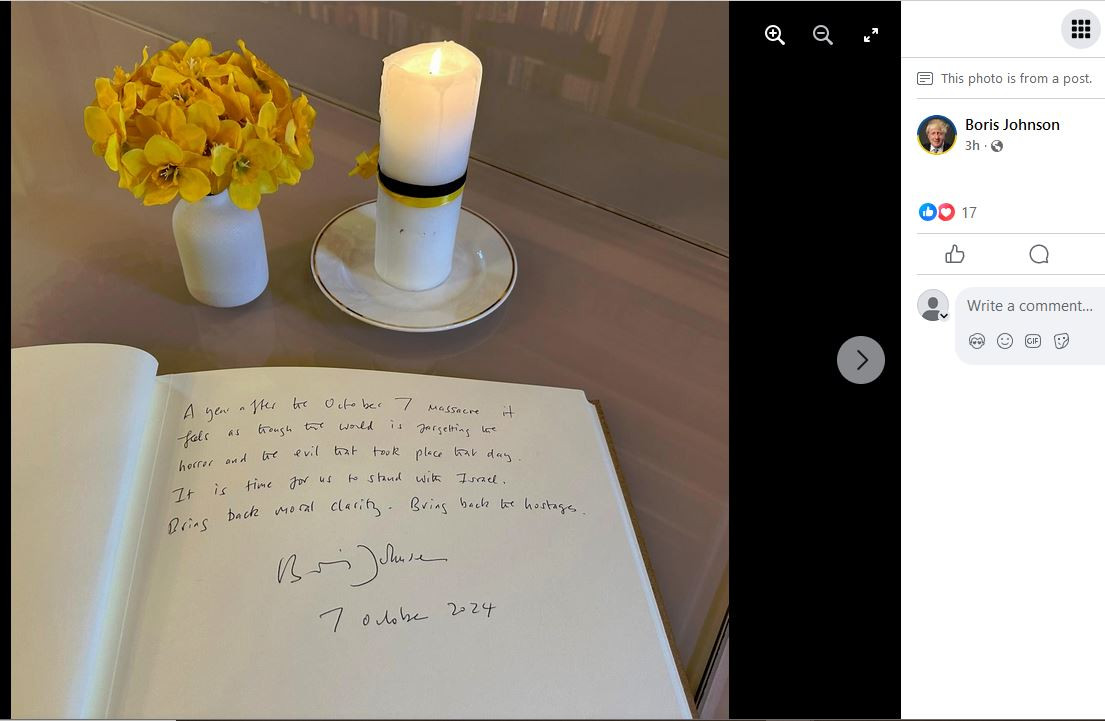 A year after the October 7 massacre it
feels as though the world is forgetting the
horror and the evil that took place that day.
It is time for us to stand with Israel.
Bring back moral clarity. Bring back the hostages.
Boris Johnson
7 October 2024
This photo is from a post.
Boris Johnson
3h ·
17
Write a comment...
GIF